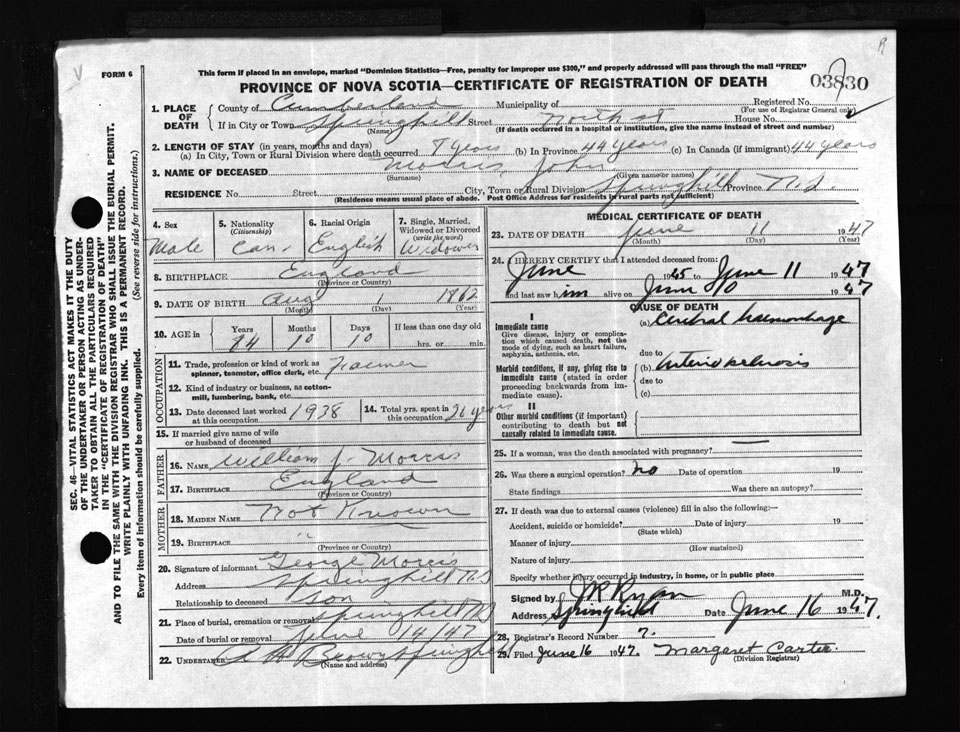 FORM 6
This form if placed in an envelope, marked "Dominion Statistics—Free, penalty for improper use $300," and properly addressed will pass through the mail "FREE"
PROVINCE OF NOVA SCOTIA—CERTIFICATE OF REGISTRATION OF DEATH
03830
SEC. 46—VITAL STATISTICS ACT MAKES IT THE DUTY
OF THE UNDERTAKER OR PERSON ACTING AS UNDER-
TAKER TO OBTAIN ALL THE PARTICULARS REQUIRED
IN THE "CERTIFICATE OF REGISTRATION OF DEATH"
AND TO FILE THE SAME WITH THE DIVISION REGISTRAR WHO SHALL ISSUE THE BURIAL PERMIT.
WRITE PLAINLY WITH UNFADING INK. THIS IS A PERMANENT RECORD.
Every item of information should be carefully supplied. (See reverse side for instructions.)
1. PLACE OF DEATH County of Cumberland Municipality of Registered No.
(For use of Registrar General only)
If in City or Town Springhill Street North St House No.
(Name) (If death occurred in a hospital or institution, give the name instead of street and number)
2. LENGTH OF STAY (in years, months and days)
(a) In City, Town or Rural Division where death occurred 8 years (b) In Province 44 years (c) In Canada (if immigrant) 44 years
3. NAME OF DECEASED Morris, John
(Surname) (Given name or names)
RESIDENCE No. Street City, Town or Rural Division Springhill Province N.S.
(Residence means usual place of abode. Post Office Address for residents in rural parts not sufficient)
4. Sex Male
5. Nationality (Citizenship) Can.
6. Racial Origin English
7. Single, Married, Widowed or Divorced (write the word) Widower
8. BIRTHPLACE England
(Province or Country)
9. DATE OF BIRTH Aug 1 1862
(Month) (Day) (Year)
10. AGE in Years 84 Months 10 Days 10 If less than one day old hrs. or min.
OCCUPATION
11. Trade, profession or kind of work as spinner, teamster, office clerk, etc. Farmer
12. Kind of industry or business, as cotton-mill, lumbering, bank, etc.
13. Date deceased last worked at this occupation 1938
14. Total yrs. spent in this occupation 26 years
15. If married give name of wife or husband of deceased
FATHER
16. NAME William J. Morris
17. BIRTHPLACE England
(Province or Country)
MOTHER
18. MAIDEN NAME Not Known
19. BIRTHPLACE "
(Province or Country)
20. Signature of informant George Morris
Address Springhill N.S
Relationship to deceased son
21. Place of burial, cremation or removal Springhill N.S
Date of burial or removal June 14/47
22. UNDERTAKER A H Brown Springhill
(Name and address)
MEDICAL CERTIFICATE OF DEATH
23. DATE OF DEATH June 11 1947
(Month) (Day) (Year)
24. I HEREBY CERTIFY that I attended deceased from:
June 1945 to June 11 1947
and last saw him alive on June 10 1947
CAUSE OF DEATH
I
Immediate cause
Give disease, injury or complication which caused death, not the mode of dying, such as heart failure, asphyxia, asthenia, etc.
(a) Cerebral haemorrhage
due to
Morbid conditions, if any, giving rise to immediate cause (stated in order proceeding backwards from immediate cause).
(b) Arterio sclerosis
due to
(c)
II
Other morbid conditions (if important) contributing to death but not causally related to immediate cause.
25. If a woman, was the death associated with pregnancy?
26. Was there a surgical operation? no Date of operation 19
State findings Was there an autopsy?
27. If death was due to external causes (violence) fill in also the following:—
Accident, suicide or homicide? Date of injury 19
(State which)
Manner of injury
(How sustained)
Nature of injury
Specify whether injury occurred in industry, in home, or in public place
Signed by J R Ryan M.D.
Address Springhill Date June 16 1947.
28. Registrar's Record Number 7.
29. Filed June 16 1947. Margaret Carter
(Division Registrar)